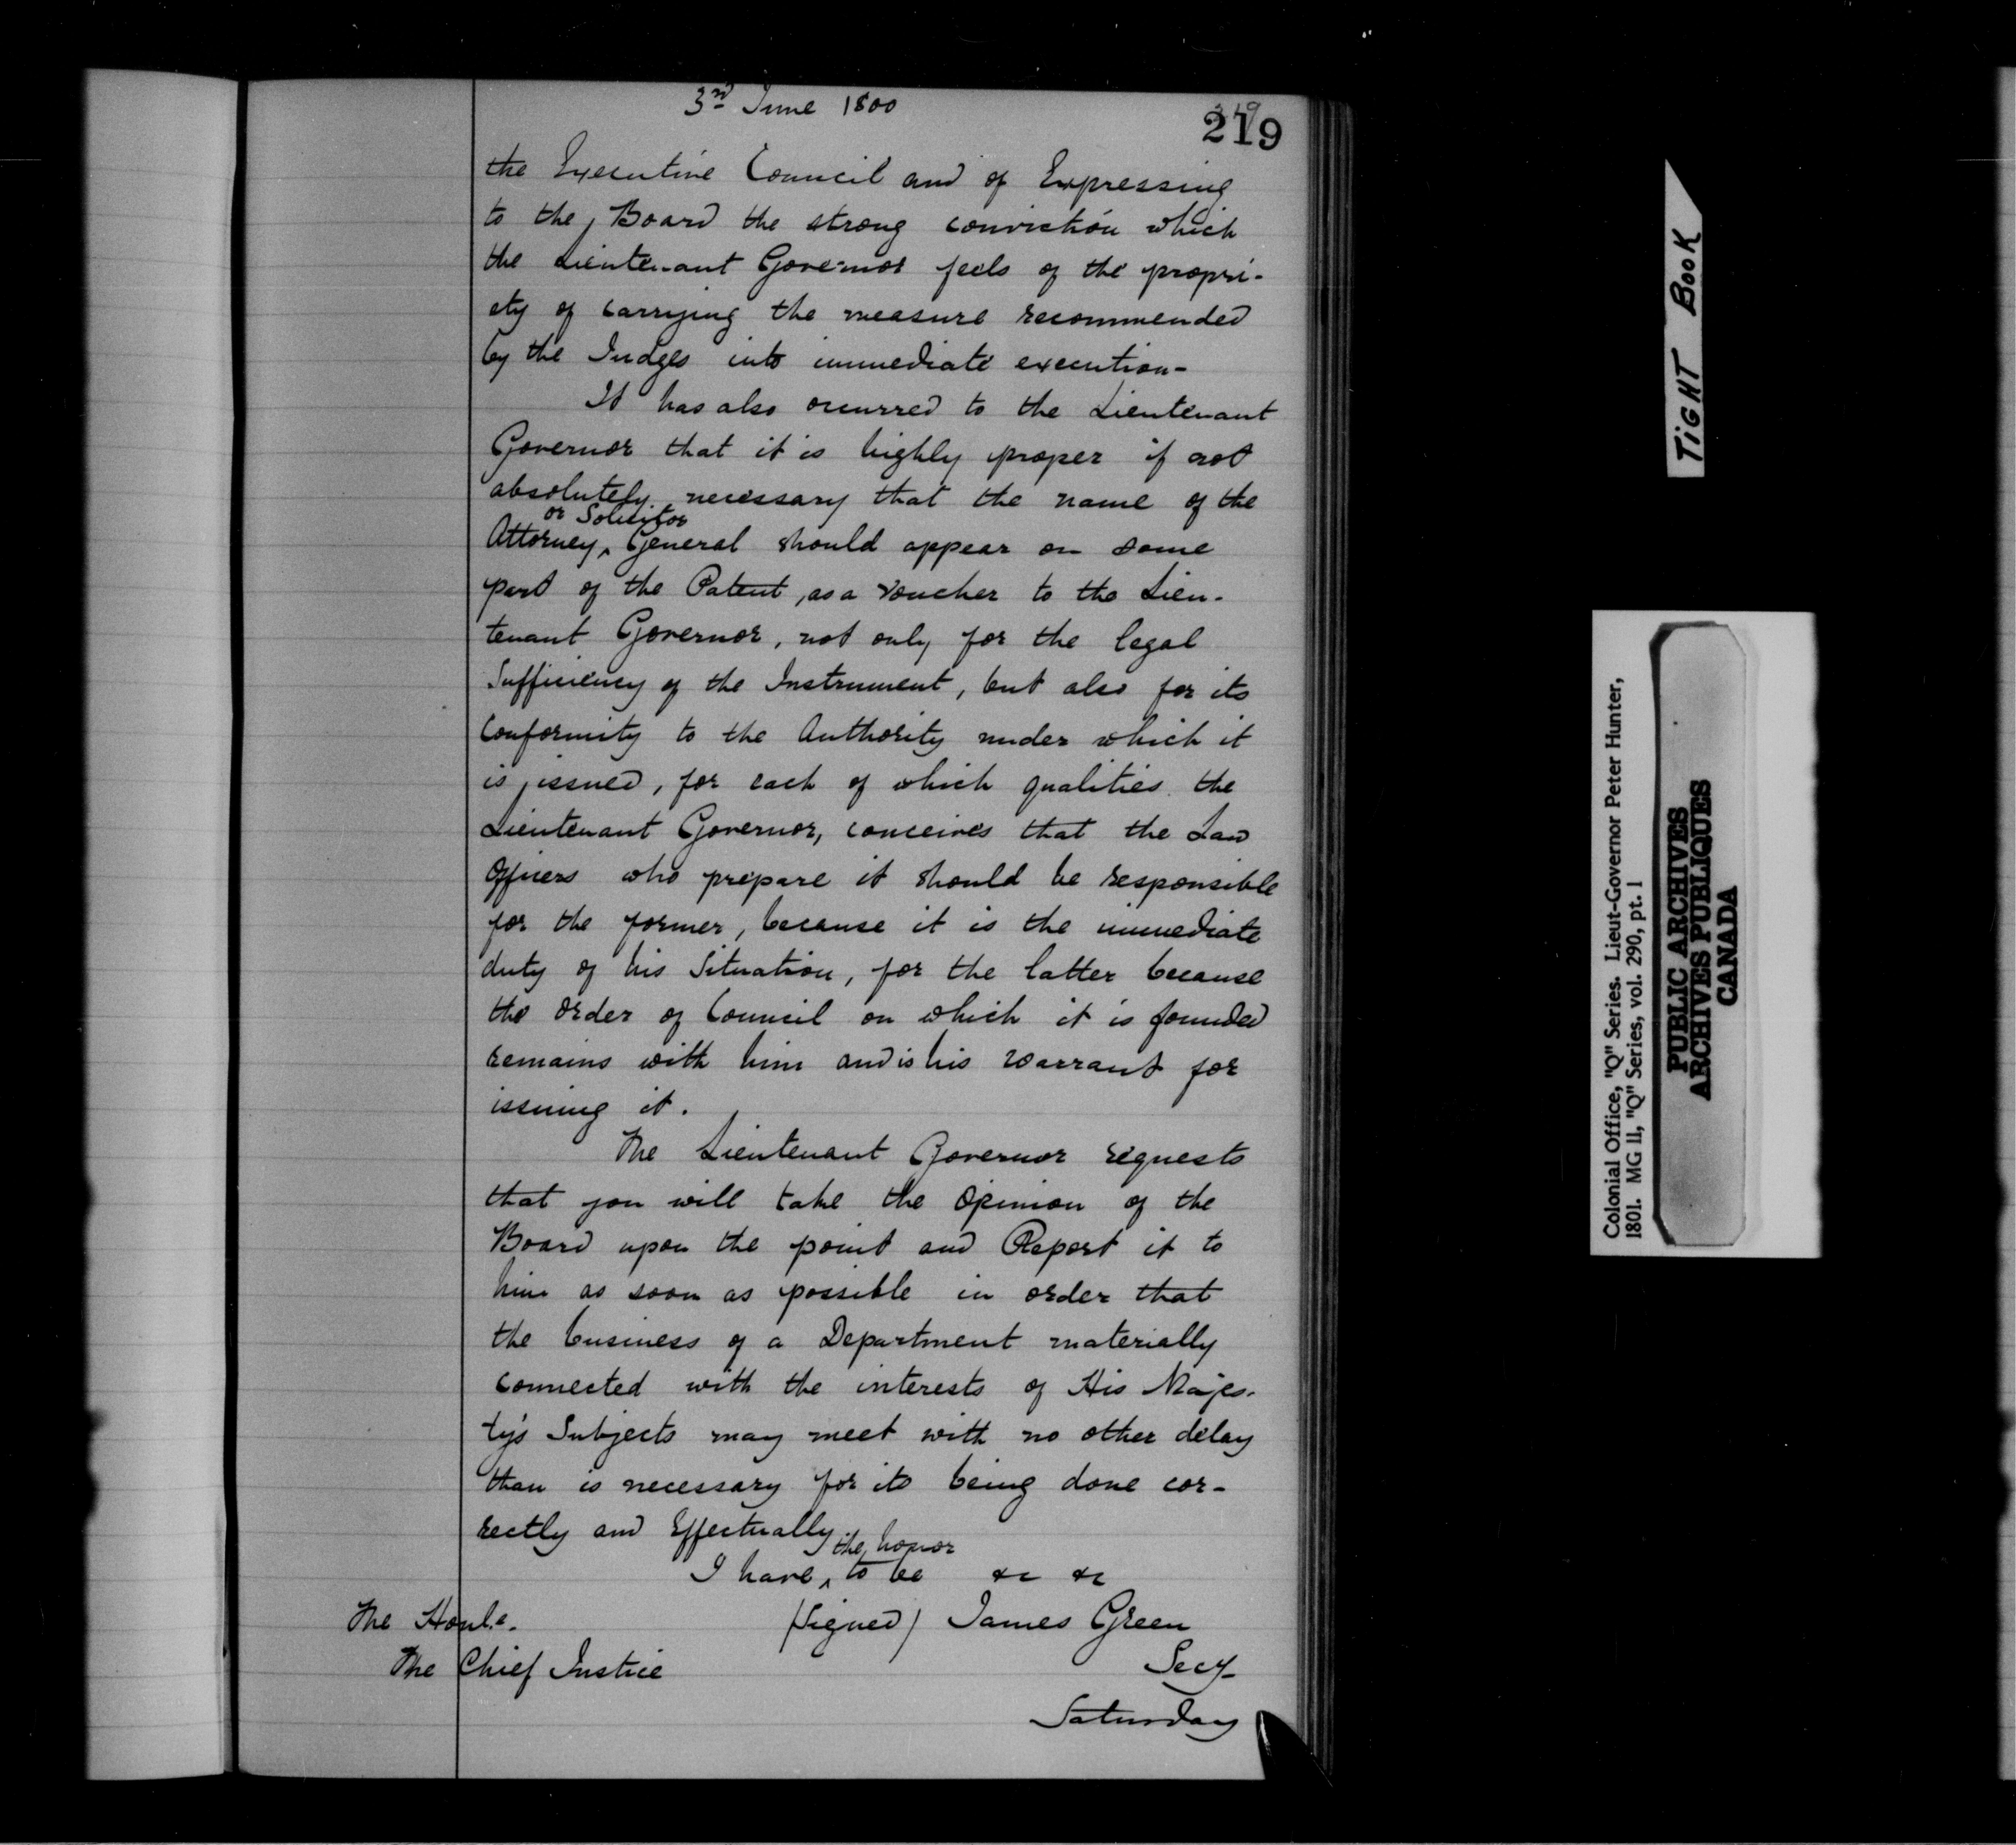 3rd June 1800
219
the Executive Council and of Expressing
to the Board the strong conviction which
the Lieutenant Governor feels of the propri-
ety of carrying the measure recommended
by the Judges into immediate execution-
It has also occurred to the Lieutenant
Governor that it is highly proper if not
absolutely necessary that the name of the
or Solicitor
Attorney ‸ General should appear on some
part of the Patent, as a voucher to the Lieu-
tenant Governor, not only for the legal
Sufficiency of the Instrument, but also for its
Conformity to the Authority under which it
is issued, for each of which qualities the
Lieutenant Governor, conceives that the Law
Officers who prepare it should be responsible
for the former, because it is the immediate
duty of his Situation, for the latter because
the order of Council on which it is founded
remains with him and is his Warrant for
issuing it.
The Lieutenant Governor requests
that you will take the Opinion of the
Board upon the point and Report it to
him as soon as possible in order that
the business of a Department materially
Connected with the interests of His Majes-
ty's Subjects may meet with no other delay
than is necessary for its being done cor-
rectly and Effectually
the honor
I have ‸ to be &c &c
The Honble.
(Signed) James Green
The Chief Justice
Secy
Saturday
TIGHT BOOK
Colonial Office, "Q" Series. Lieut-Governor Peter Hunter,
1801. MG 11, "Q" Series, vol. 290, pt. 1
PUBLIC ARCHIVES
ARCHIVES PUBLIQUES
CANADA